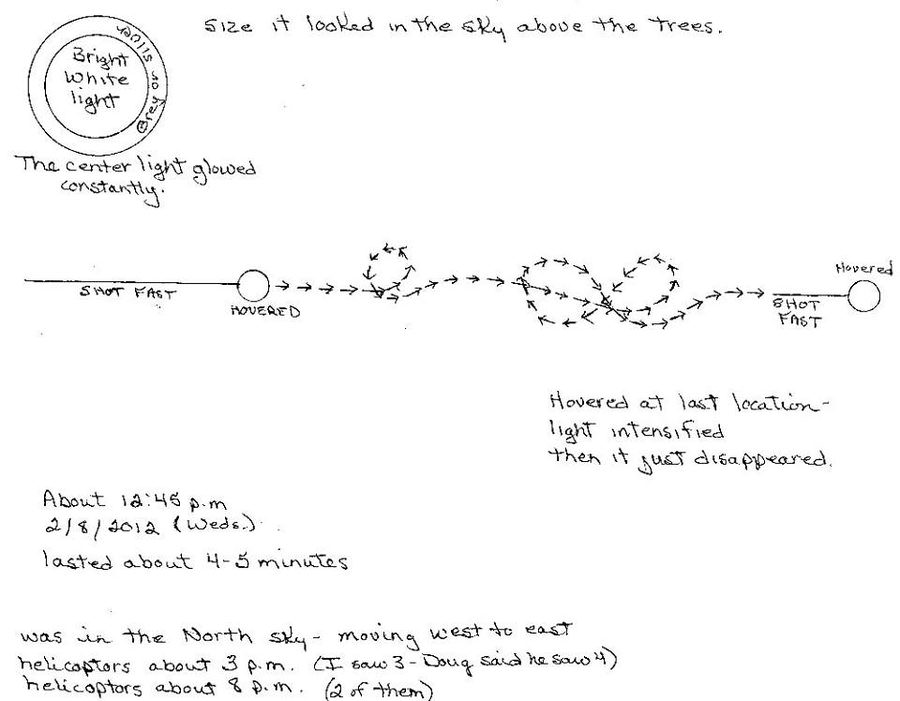 Size it looked in the sky above the trees.
Bright
White
light
Grey or silver
The center light glowed
constantly.
Hovered
SHOT FAST
HOVERED
SHOT
FAST
Hovered at last location-
light intensified
then it just disappeared.
About 12:45 p.m
2/8/2012 (Weds.)
lasted about 4-5 minutes
was in the North sky - moving west to east
helicoptors about 3 p.m. (I saw 3 - Doug said he saw 4)
helicoptors about 8 p.m. (2 of them)